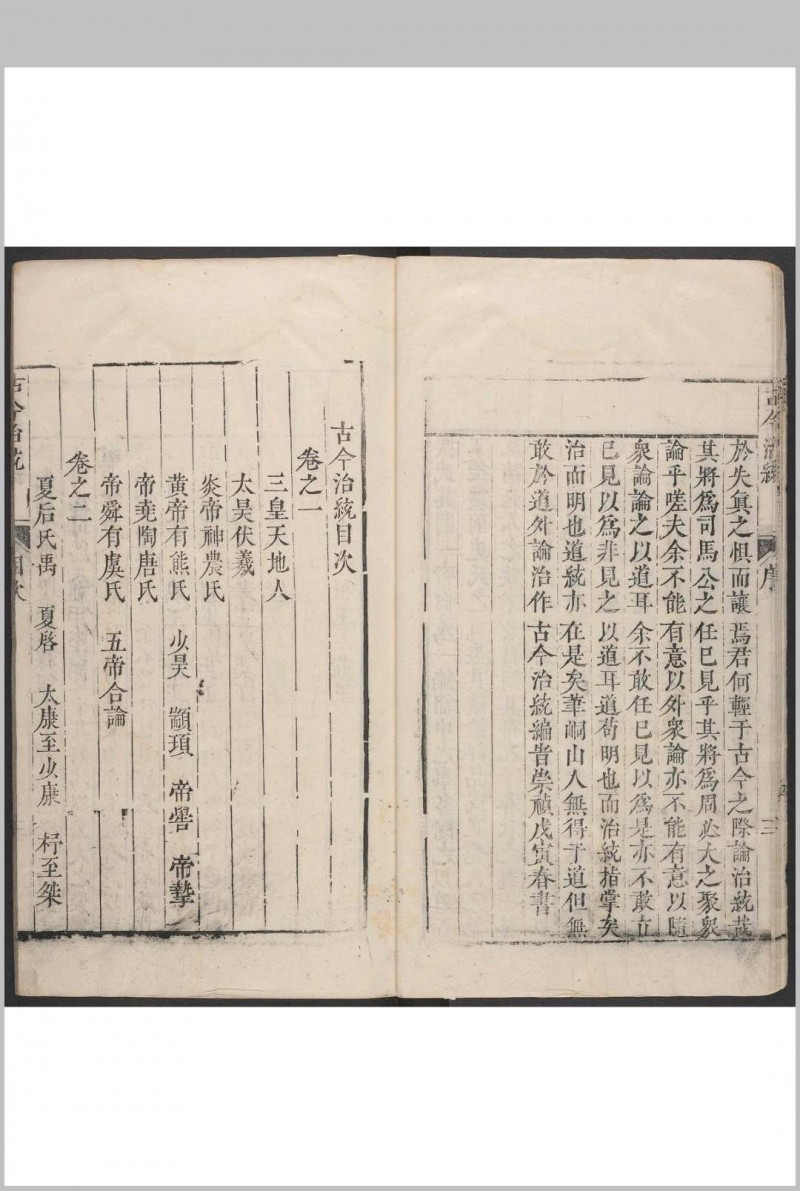 古今治統
序
三
於失眞之惧而讓焉君何輕于古今之際論治統哉
其將爲司馬公之任已見乎其將爲周必大之聚衆
論乎嗟夫余不能有意以外衆論亦不能有意以隨
衆論論之以道耳余不敢任已見以爲是亦不敢立
已見以爲非見之以道耳道苟明也而治統指掌矣
治而明也道統亦在是矣華峒山人無得于道但無
敢於道外論治作古今治統編旹崇禎戊寅春書
古今治統目次
卷之一
三皇天地人
太昊伏羲
炎帝神農氏
黃帝有熊氏 少昊 顓頊 帝嚳 帝摯
帝堯陶唐氏
帝舜有虞氏 五帝合論
卷之二
夏后氏禹 夏啓 太康至少康 杼至桀
古今治統
目次